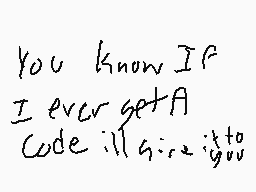 You know If
I ever get A
Code ill give it to
you